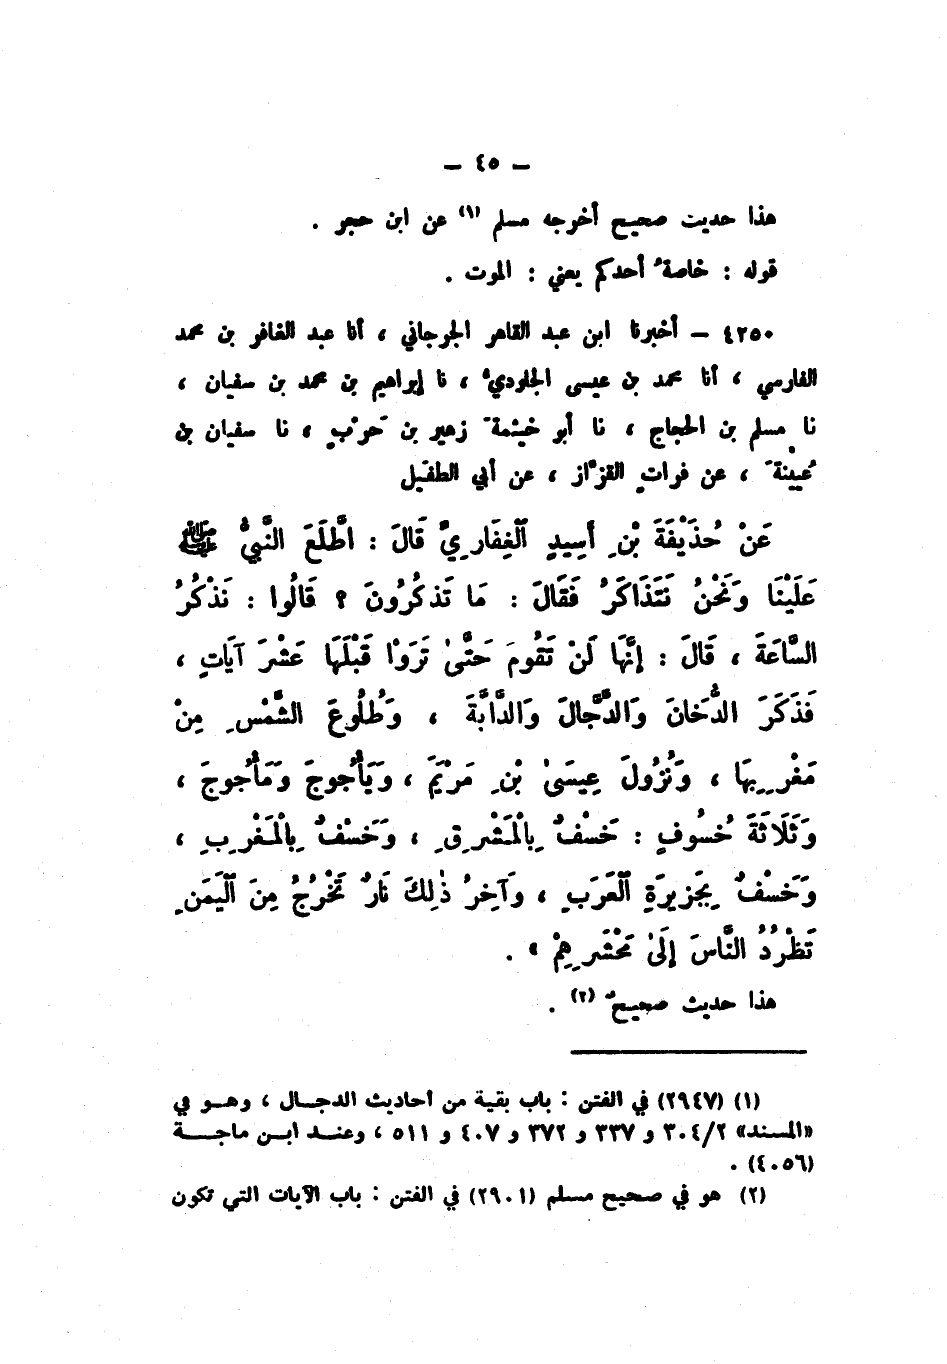 – ٤٥ –
هذا حديث صحيح أخرجه مسلم (١) عن ابن حجر .
قوله : خاصةُ أحدكم يعني : الموت .
٤٢٥٠ – أخبرنا ابن عبد القاهر الجرجاني ، أنا عبد الغافر بن محمد
الفارسي ، أنا محمد بن عيسى الجلوديُّ ، نا إبراهيم بن محمد بن سفيان ،
نا مسلم بن الحجاج ، نا أبو خيثمةَ زهير بن حَرْبٍ ، نا سفيان بن
عُيينةَ ، عن فراتٍ القزَّاز ، عن أبي الطفَيل
عَنْ حُذَيْفَةَ بْنِ أَسِيدٍ ٱلْغِفَارِيِّ قَالَ : ٱطَّلَعَ النَّبِيُّ ﷺ
عَلَيْنَا وَنَحْنُ نَتَذَاكَرُ فَقَالَ : مَا تَذكُرُونَ ؟ قَالُوا : نَذْكُرُ
السَّاعَةَ ، قَالَ : إِنَّهَا لَنْ تَقُومَ حَتَّىٰ تَرَوْا قَبْلَهَا عَشْرَ آيَاتٍ ،
فَذَكَرَ الدُّخَانَ وَالدَّجَّالَ وَالدَّابَّةَ ، وَطُلُوعَ الشَّمْسِ مِنْ
مَغْرِبِهَا ، وَنُزُولَ عِيسَىٰ بْنِ مَرْيَمَ ، وَيَأْجُوجَ وَمَأْجُوجَ ،
وَثَلَاثَةَ خُسُوفٍ : خَسْفٌ بِالْمَشْرِقِ ، وَخَسْفٌ بِالْمَغْرِبِ ،
وَخَسْفٌ بِجَزِيرَةِ ٱلْعَرَبِ ، وَآخِرُ ذٰلِكَ نَارٌ تَخْرُجُ مِنَ ٱلْيَمَنِ
تَطْرُدُ النَّاسَ إِلَىٰ مَحْشَرِهِمْ » .
هذا حديث صحيحٌ (٢) .
(١) (٢٩٤٧) في الفتن : باب بقية من أحاديث الدجال ، وهو في
«المسند» ٢/٣٠٤ و ٣٣٧ و ٣٧٢ و ٤٠٧ و ٥١١ ، وعند ابن ماجة
(٤٠٥٦) .
(٢) هو في صحيح مسلم (٢٩٠١) في الفتن : باب الآيات التي تكون